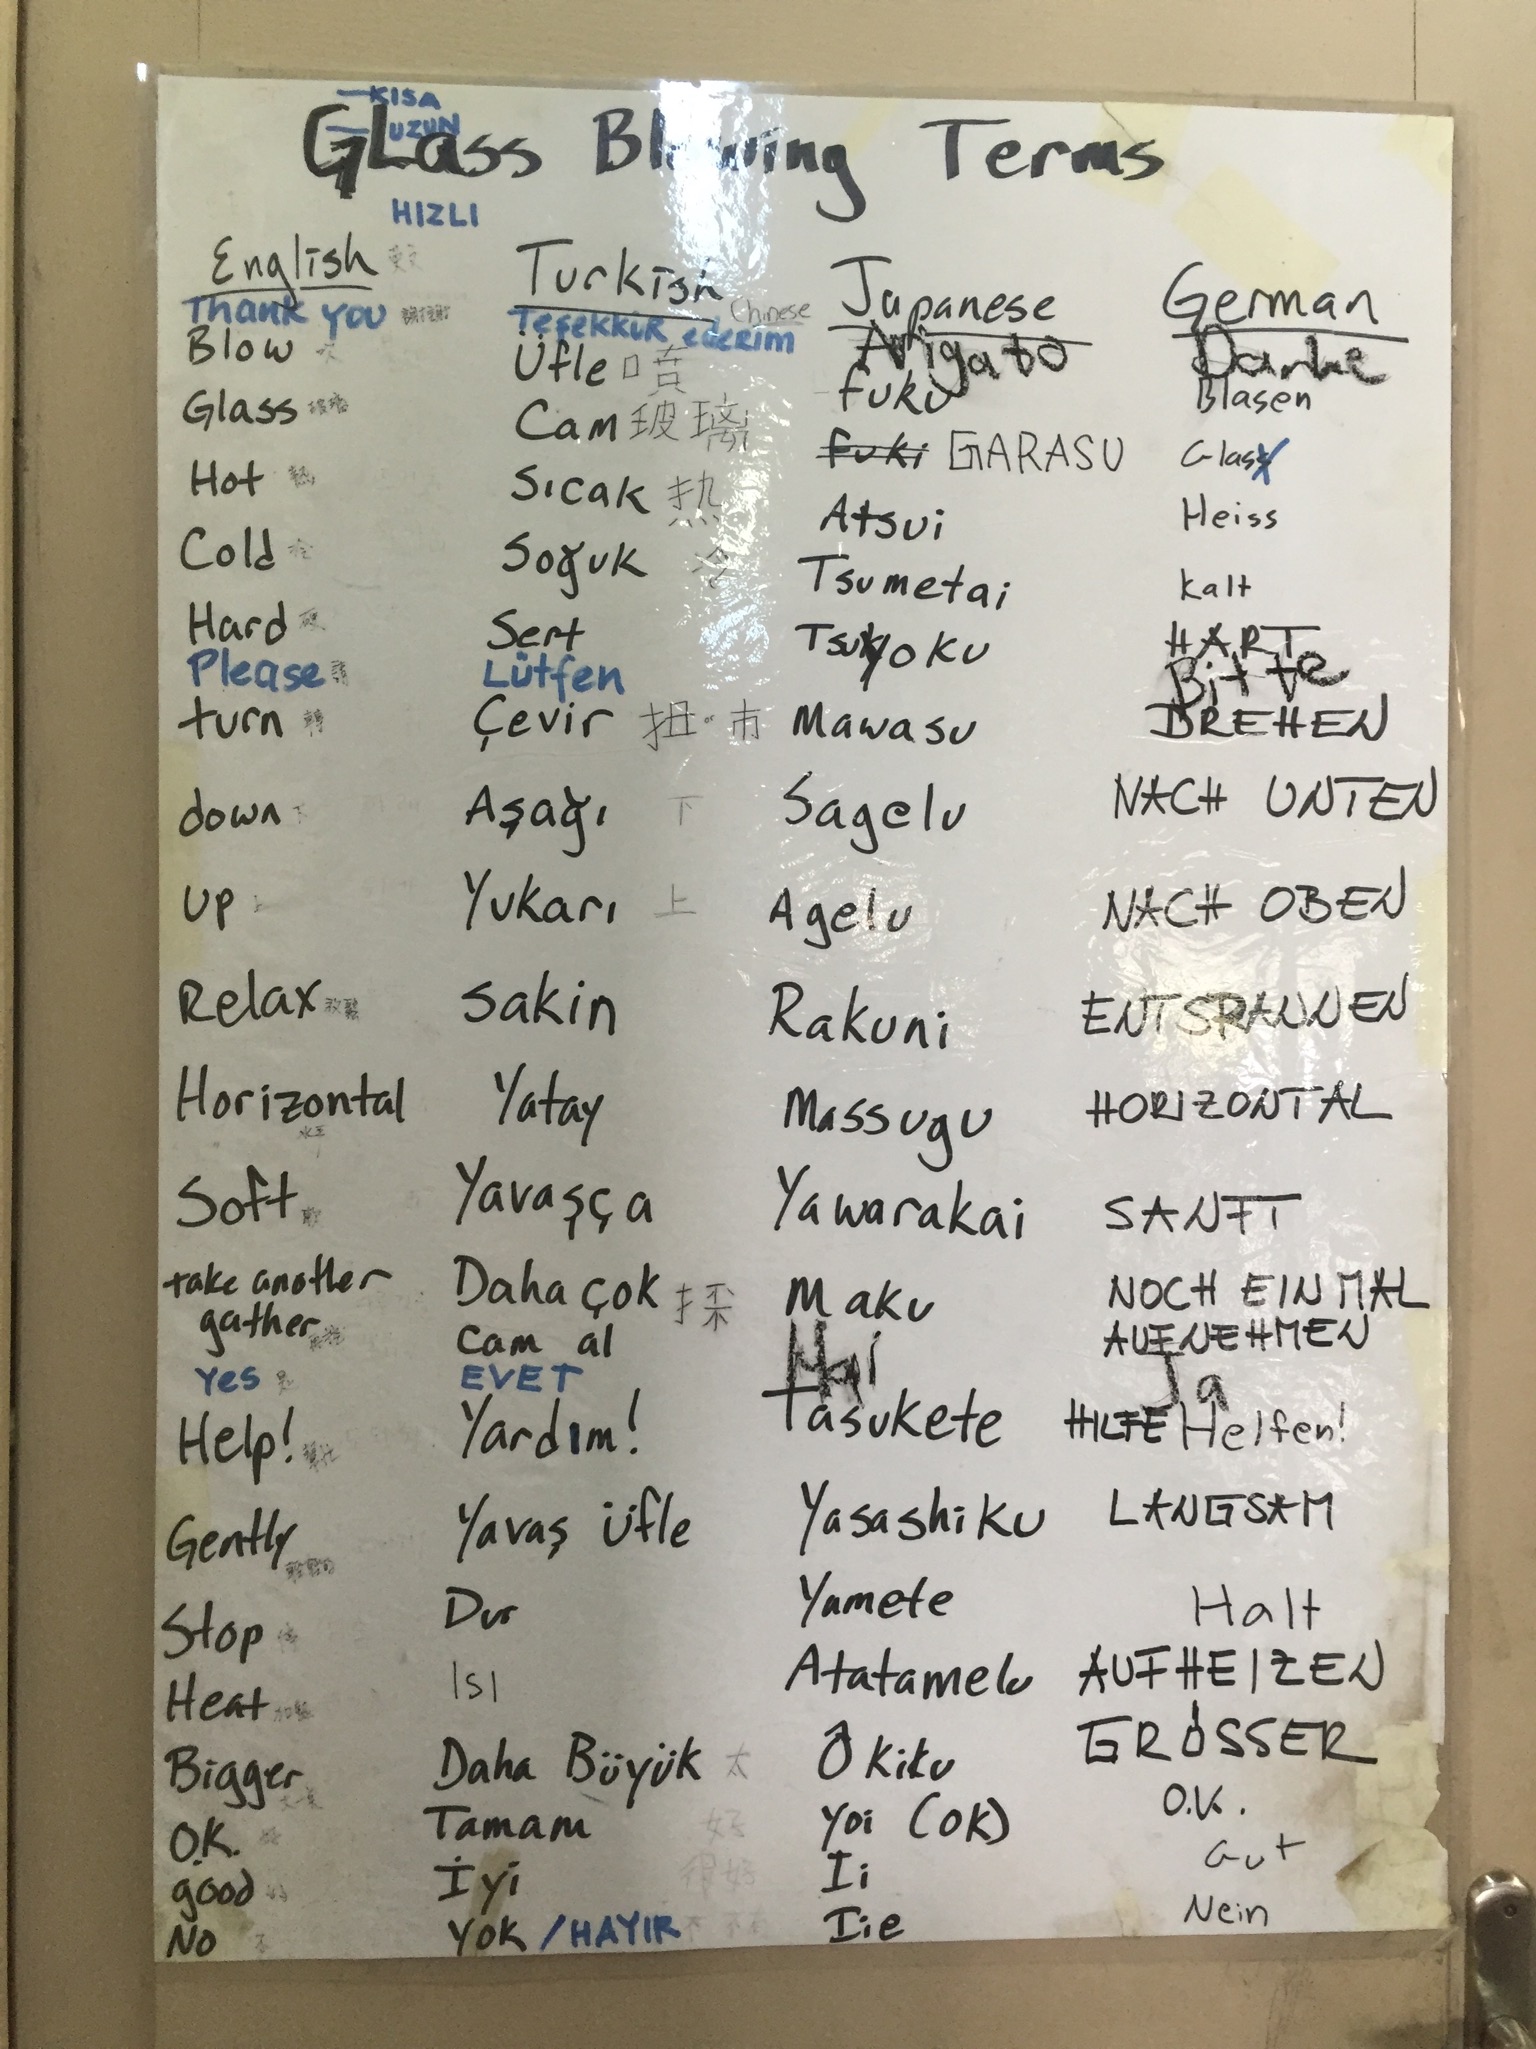 KISA
UZUN
GLass Blowing Terms
HIZLI
English Turkish Chinese Japanese German
Thank you Teşekkür ederim Arigato Danke
Blow Üfle 口喷 fuku Blasen
Glass Cam 玻璃 fuki GARASU Glas
Hot Sıcak 热 Atsui Heiss
Cold Soğuk 冷 Tsumetai kalt
Hard Sert Tsuyoku HART
Please Lütfen Bitte
turn Çevir 扭 Mawasu DREHEN
down Aşağı 下 Sagelu NACH UNTEN
up Yukarı 上 Agelu NACH OBEN
Relax Sakin Rakuni ENTSPANNEN
Horizontal Yatay Massugu HORIZONTAL
水平
Soft Yavaşça Yawarakai SANFT
take another Daha çok 采 Maku NOCH EINMAL
gather cam al AUFNEHMEN
Yes 是 EVET Hai Ja
Help! Yardım! Tasukete HILFE Helfen!
Gently Yavaş üfle Yasashiku LANGSAM
Stop Dur Yamete Halt
Heat Isı Atatamelu AUFHEIZEN
Bigger Daha Büyük 大 Ôkiku GRÖSSER
O.K. Tamam 好 Yoi (OK) O.K.
good İyi 很好 Ii Gut
No 不 Yok / HAYIR 不 Iie Nein